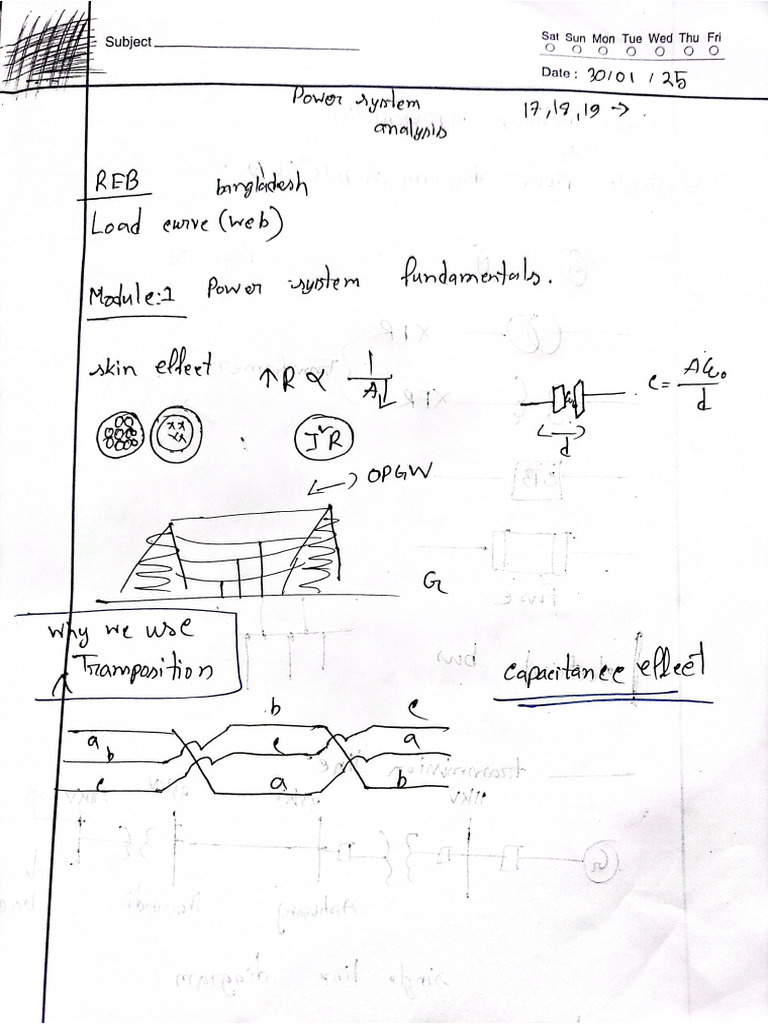 Subject
Sat Sun Mon Tue Wed Thu Fri
Date : 30/01/25
Power system
analysis
17,18,19 →
REB bangladesh
Load curve (web)
Module:1 Power system fundamentals.
skin effect ↑R ∝ 1/A↓
C = Aε₀/d
d
I²R
OPGW
G
Why we use
Transposition
capacitance effect
a b c
b c a
c a b